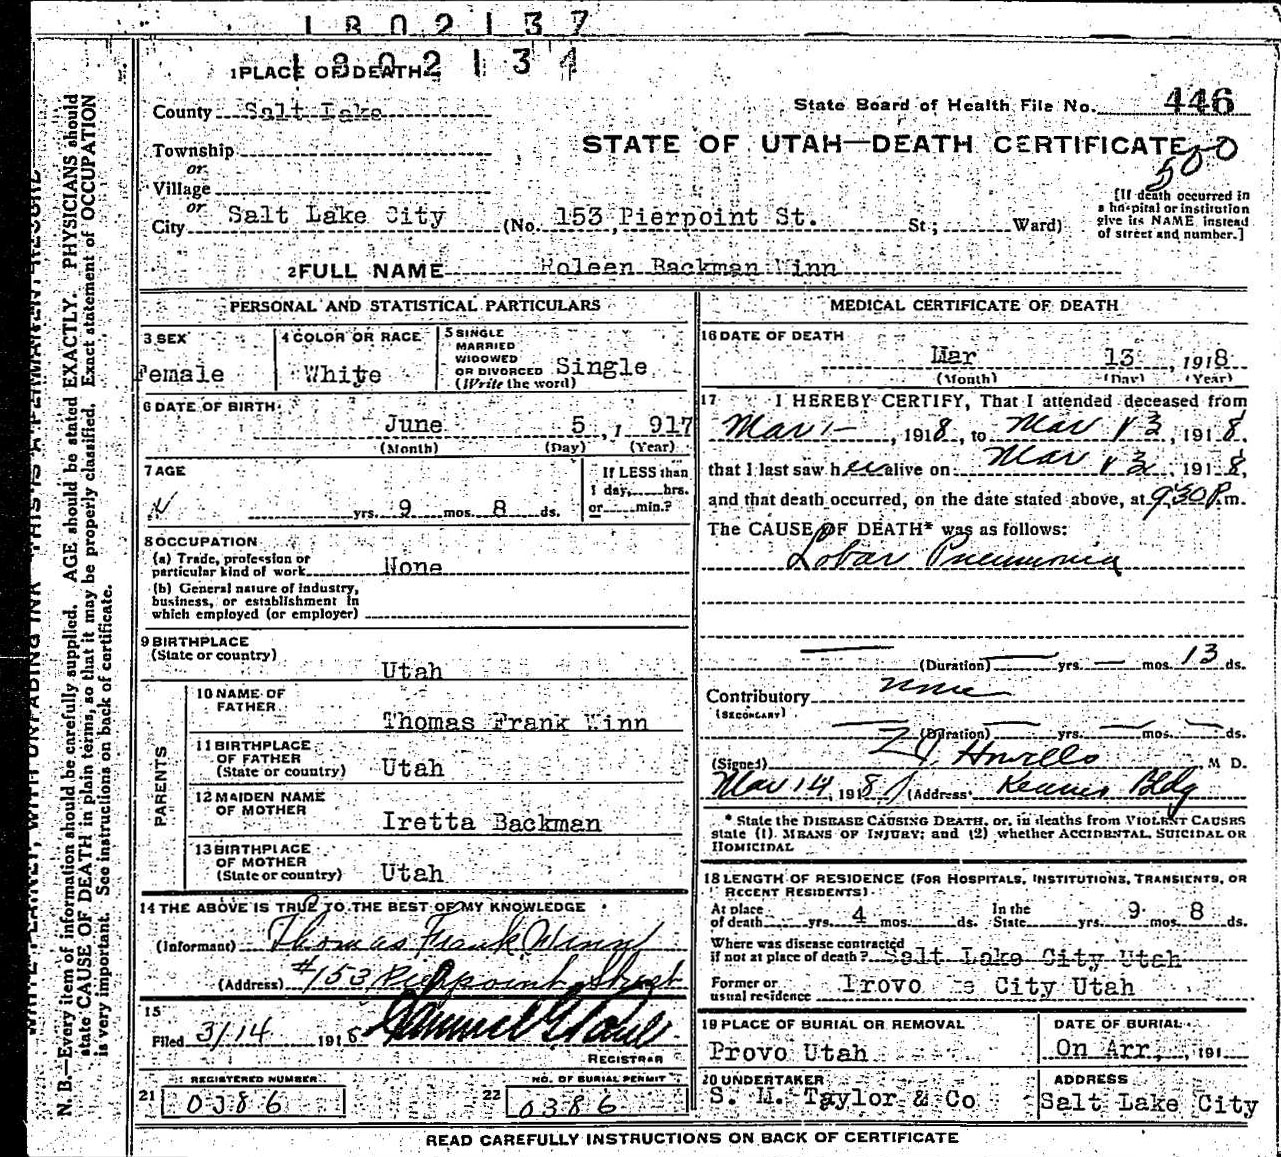 1802137
1802134
1 PLACE OF DEATH
County Salt Lake
State Board of Health File No. 446
Township
STATE OF UTAH—DEATH CERTIFICATE
500
or
Village
or
City Salt Lake City (No. 153, Pierpoint St. St; Ward)
[If death occurred in
a hospital or institution
give its NAME instead
of street and number.]
2 FULL NAME Holeen Backman Winn
PERSONAL AND STATISTICAL PARTICULARS
3 SEX
Female
4 COLOR OR RACE
White
5 SINGLE
MARRIED
WIDOWED
OR DIVORCED Single
(Write the word)
6 DATE OF BIRTH
June 5, 1917
(Month) (Day) (Year)
7 AGE
yrs. 9 mos. 8 ds.
If LESS than
1 day, hrs.
or min.?
8 OCCUPATION
(a) Trade, profession or
particular kind of work None
(b) General nature of industry,
business, or establishment in
which employed (or employer)
9 BIRTHPLACE
(State or country)
Utah
PARENTS
10 NAME OF
FATHER
Thomas Frank Winn
11 BIRTHPLACE
OF FATHER
(State or country) Utah
12 MAIDEN NAME
OF MOTHER
Iretta Backman
13 BIRTHPLACE
OF MOTHER
(State or country) Utah
14 THE ABOVE IS TRUE TO THE BEST OF MY KNOWLEDGE
(Informant) Thomas Frank Winn
(Address) #153 Pierpoint Street
15
Filed 3/14 191
REGISTRAR
REGISTERED NUMBER
21 0386
NO. OF BURIAL PERMIT
22 0386
MEDICAL CERTIFICATE OF DEATH
16 DATE OF DEATH
Mar 13, 1918
(Month) (Day) (Year)
17 I HEREBY CERTIFY, That I attended deceased from
Mar 1-, 1918, to Mar 13, 1918,
that I last saw her alive on Mar 13, 1918,
and that death occurred, on the date stated above, at 9:30 P.m.
The CAUSE OF DEATH* was as follows:
Lobar Pneumonia
(Duration) — yrs. — mos. 13 ds.
Contributory none
(SECONDARY)
(Duration) — yrs. — mos. — ds.
(Signed) Howells M D.
Mar 14, 1918 (Address) Kearns Bldg
* State the DISEASE CAUSING DEATH, or, in deaths from VIOLENT CAUSES
state (1) MEANS OF INJURY; and (2) whether ACCIDENTAL, SUICIDAL OR
HOMICIDAL
18 LENGTH OF RESIDENCE (FOR HOSPITALS, INSTITUTIONS, TRANSIENTS, OR
RECENT RESIDENTS).
At place
of death yrs. 4 mos. ds. In the
State yrs. 9 mos. 8 ds.
Where was disease contracted
if not at place of death? Salt Lake City Utah
Former or
usual residence Provo City Utah
19 PLACE OF BURIAL OR REMOVAL
Provo Utah
DATE OF BURIAL
On Arr, 191
20 UNDERTAKER
S. M. Taylor & Co
ADDRESS
Salt Lake City
READ CAREFULLY INSTRUCTIONS ON BACK OF CERTIFICATE
WRITE PLAINLY, WITH UNFADING INK—THIS IS A PERMANENT RECORD
N. B.—Every item of information should be carefully supplied. AGE should be stated EXACTLY. PHYSICIANS should
state CAUSE OF DEATH in plain terms, so that it may be properly classified. Exact statement of OCCUPATION
is very important. See instructions on back of certificate.